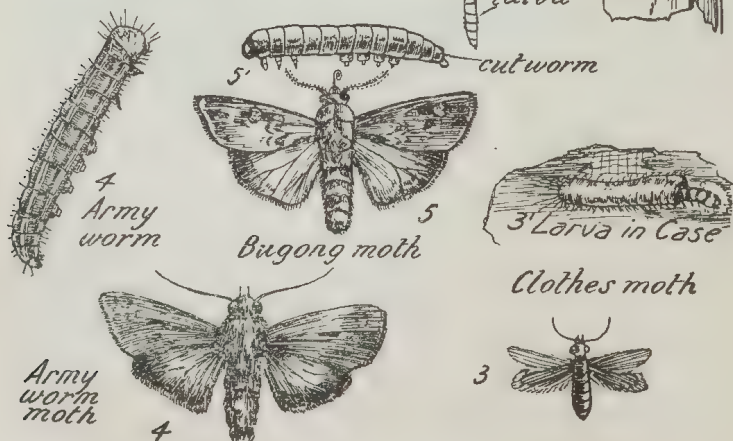 larva
cutworm
5'
4
Army
worm
5
Bugong moth
3' Larva in Case
Clothes moth
3
Army
worm
moth
4